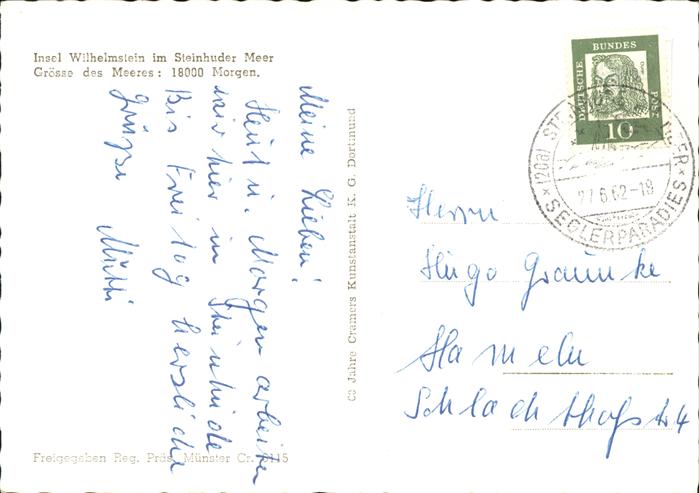 Insel Wilhelmstein im Steinhuder Meer
Grösse des Meeres: 18000 Morgen.
Meine Lieben!
Heut u. Morgen arbeiten
wir hier in Steinhude
Bis Freitag herzliche
Grüße Mutti
60 Jahre Cramers Kunstanstalt K. G. Dortmund
DEUTSCHE BUNDES POST
10
(20a) STEINHUDER MEER
27.6.62-19
SEGLERPARADIES
Herrn
Hugo Graunke
Hameln
Schlachthofstr 4
Freigegeben Reg. Präs. Münster Cr. 6115